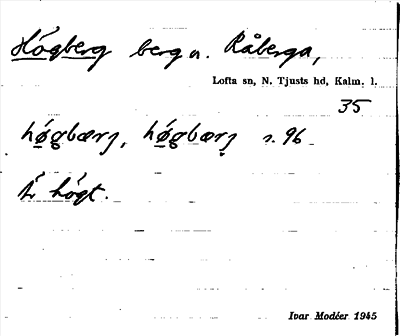 Högberg berg n. Råberga,
Lofta sn, N. Tjusts hd, Kalm. l.
35
hǿgbærj, hǿgbærj s. 96
Är högt.
Ivar Modéer 1945